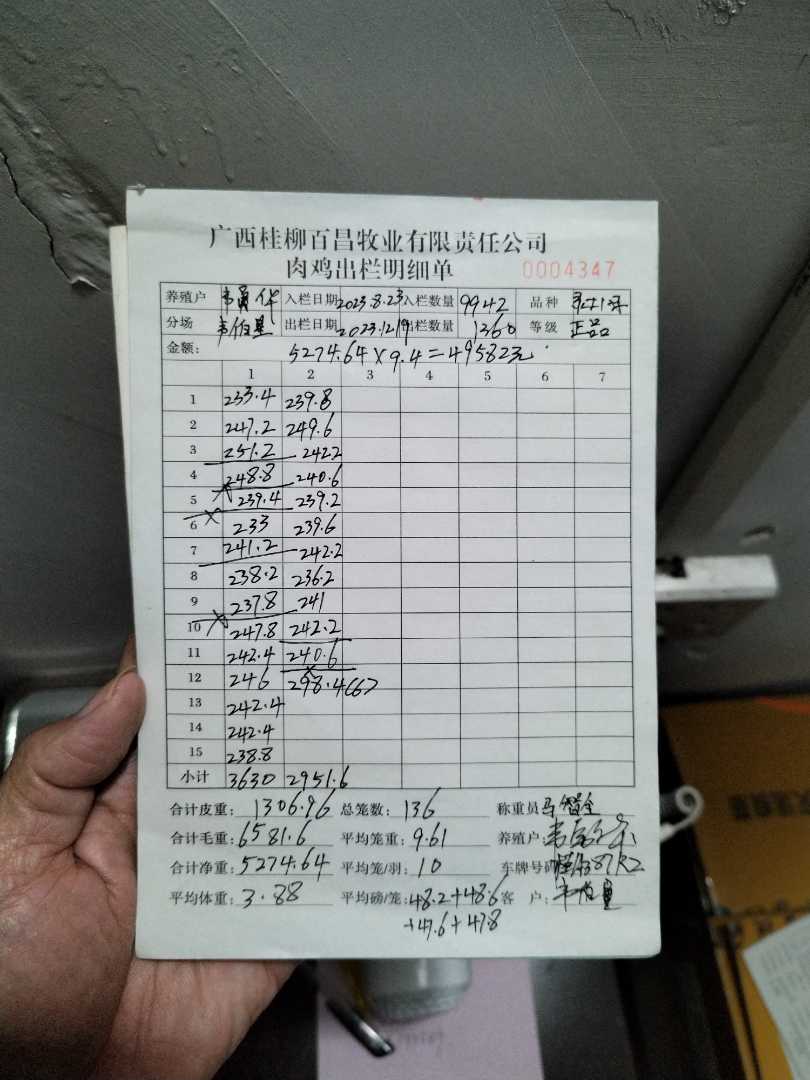 广西桂柳百昌牧业有限责任公司
肉鸡出栏明细单 0004347
养殖户 韦勇华 入栏日期 2023.8.23 入栏数量 9942 品种
分场 韦伯星 出栏日期 2023.12.19 出栏数量 1360 等级 正品
金额: 5274.64×9.4=49582元
1 2 3 4 5 6 7
1 233.4 239.8
2 247.2 249.6
3 251.2 242.2
4 248.8 240.6
5 239.4 239.2
6 233 239.6
7 241.2 242.2
8 238.2 236.2
9 237.8 241
10 247.8 242.2
11 242.4 240.6
12 246 298.4(6)
13 242.4
14 242.4
15 238.8
小计 3630 2951.6
合计皮重: 1306.96 总笼数: 136 称重员
合计毛重: 6581.6 平均笼重: 9.61 养殖户:
合计净重: 5274.64 平均笼/羽: 10 车牌号码
平均体重: 3.88 平均磅/笼: 48.2+48.6 客 户:
+47.6+47.8